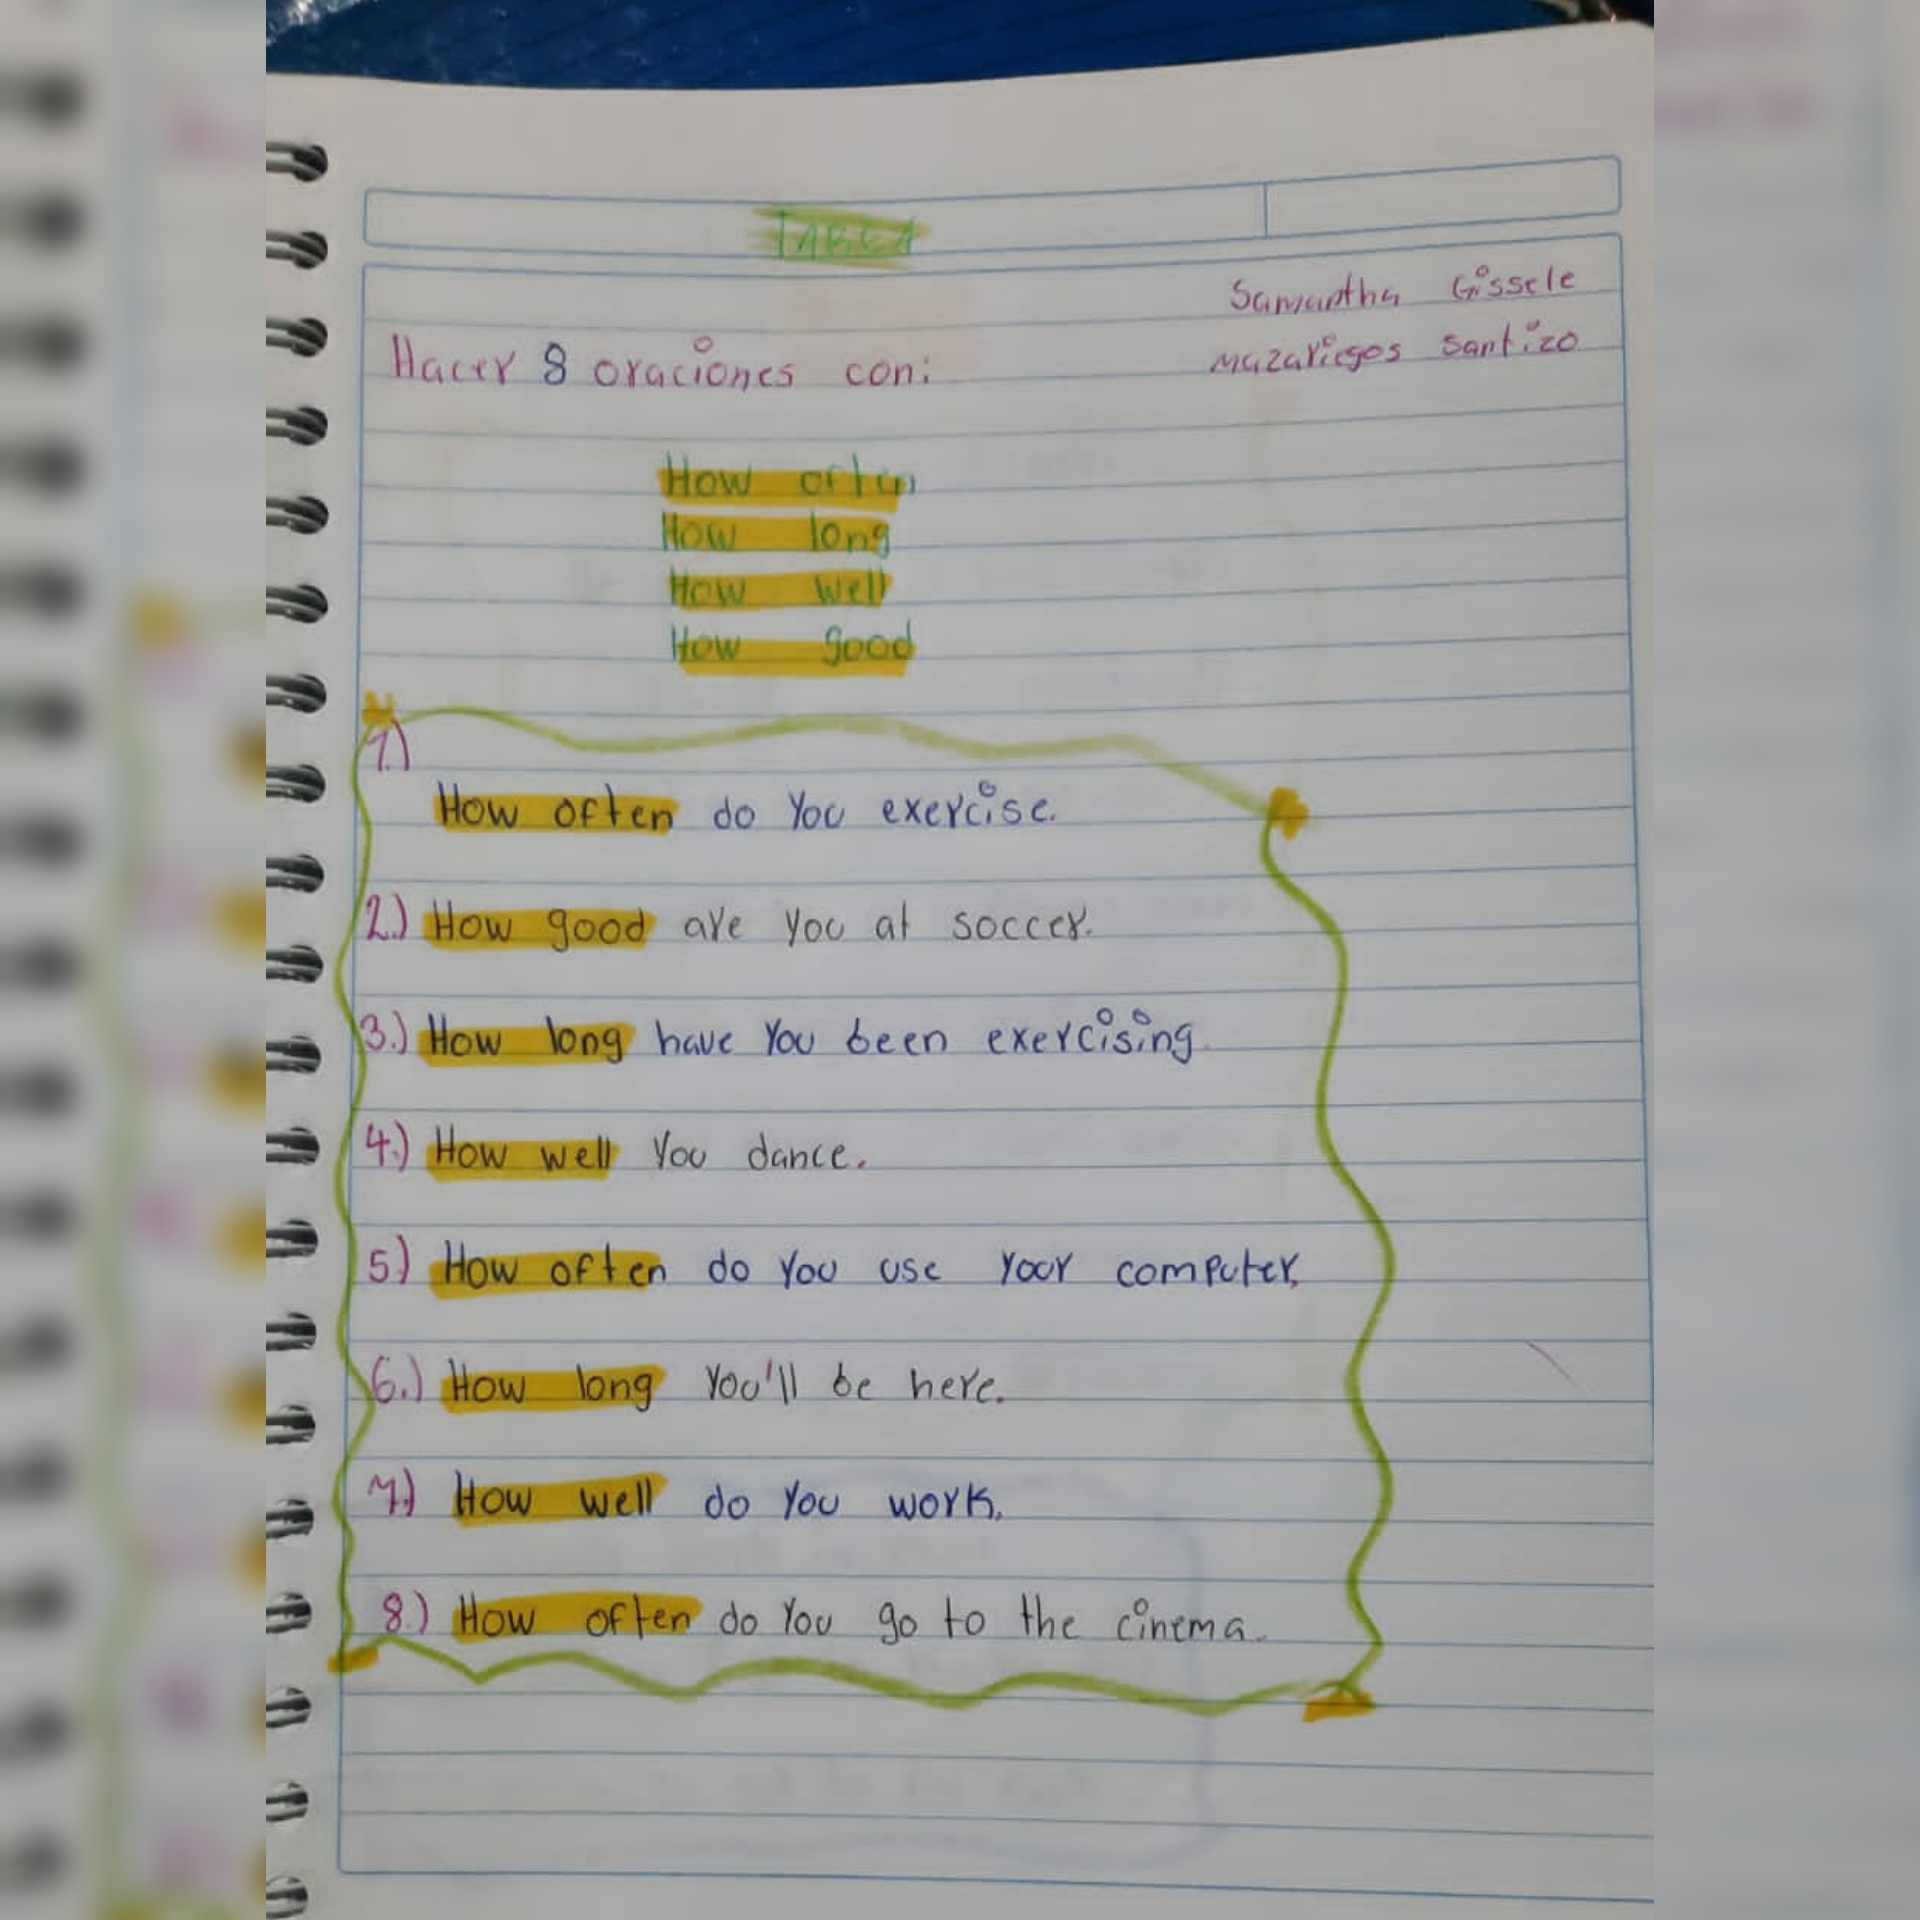 TAREA
Samantha Gissele
Mazariegos Santizo
Hacer 8 oraciones con:
How often
How long
How well
How good
1.)
How often do you exercise.
2.) How good are you at soccer.
3.) How long have you been exercising.
4.) How well you dance.
5.) How often do you use your computer.
6.) How long you'll be here.
7.) How well do you work.
8.) How often do you go to the cinema.